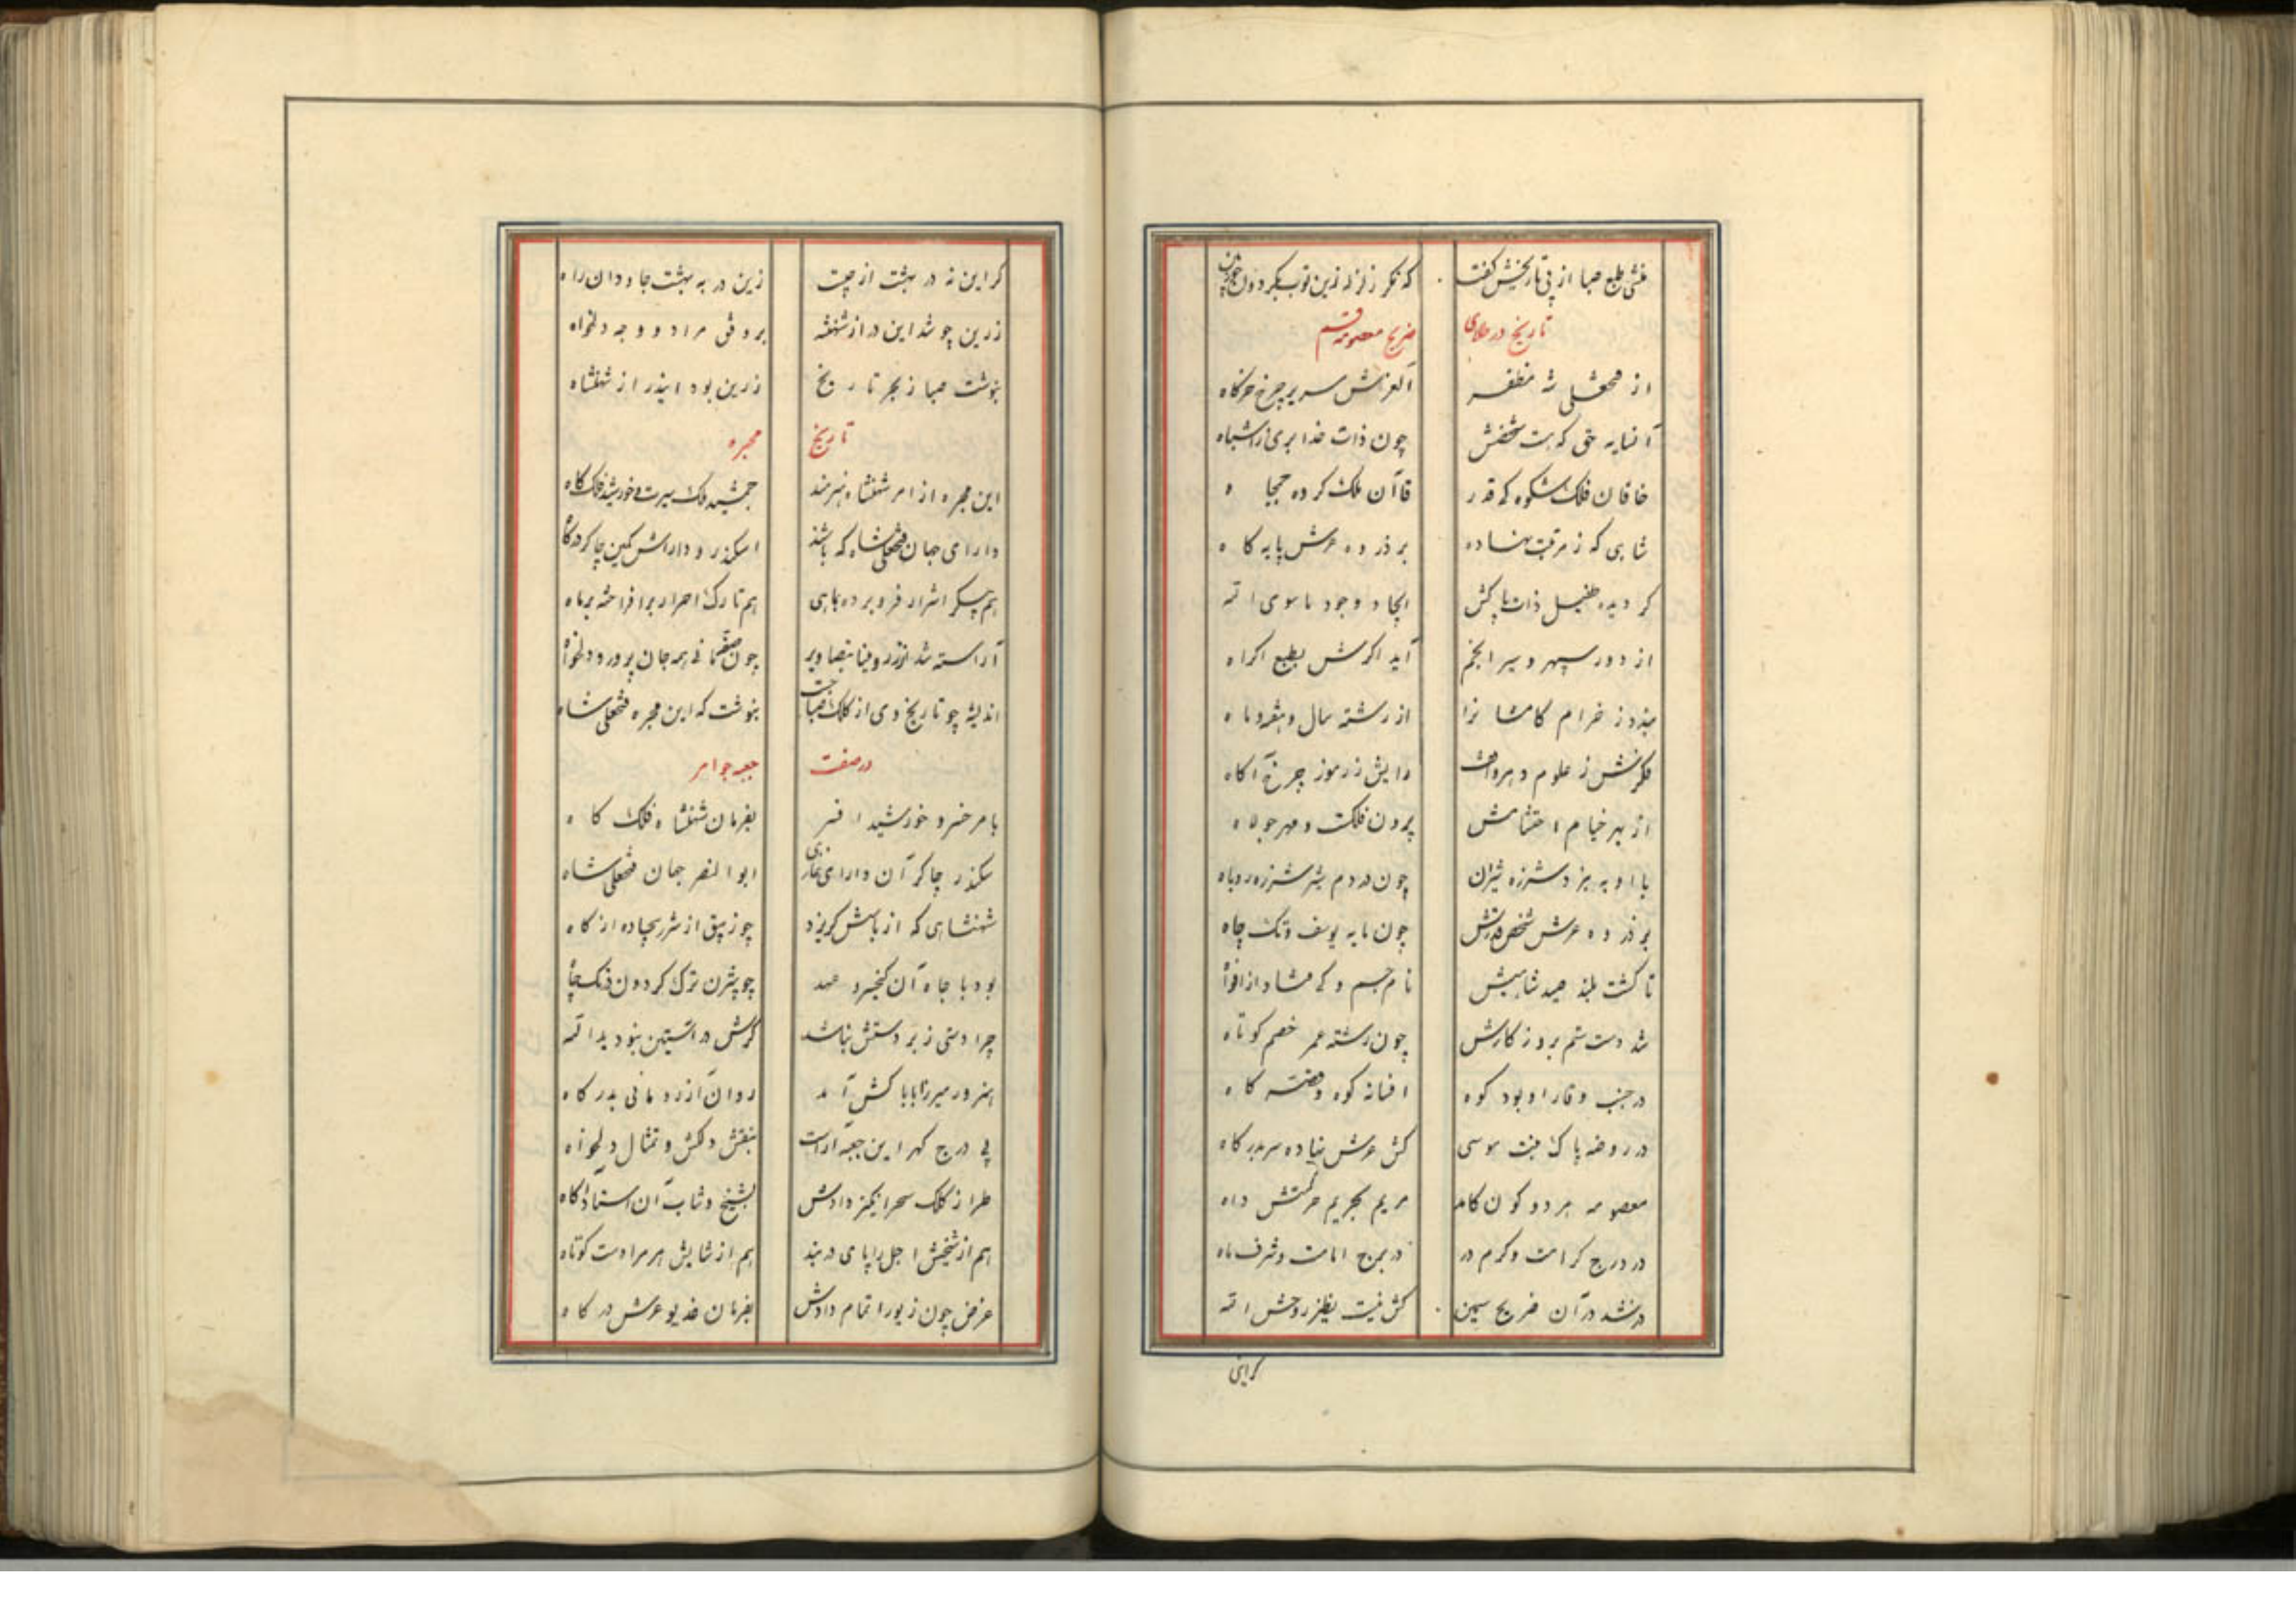 منشی طبع صبا از پی تاریخش گفت که نگر زلزله زین توپ بگردون
تاریخ در طلای ضریح معصومه قم
از فتحعلی شه مظفر آنعرشش سریر چرخ خرگاه
آنسایه حق که هست شخصش چون ذات خدا بری ز اشباه
خاقان فلک شکوه که قدر قاآن ملک کرده جمجاه
شاهی که ز مرتبت نهاده بر ذروه عرش پایه گاه
گردیده طفیل ذات پاکش ایجاد وجود ماسوی الله
از دور سپهر و سیر انجم آید اگرش بطبع اکراه
خرام از رشته سال و هفته و ماه
فکرتش ز علوم دهر واقف رایش ز رموز چرخ آگاه
از بهر خیام احتشامش پرون فلکت و مهر جولاه
با او به نبرد شرزه شیران چون در دم شیر شرزه روباه
بر ذروه عرش شخص قدرش چون مایه یوسف و تک چاه
تا گشت بلند صیت شاهیش نام جم و کی فتاد از افواه
شد دست ستم بروزگارش چون رشته عمر خصم کوتاه
در جنب وقار او بود کوه افسانه کوه و قصه کاه
در روضه پاک بنت موسی کش عرش نهاده سر بدرگاه
معصومه هر دو کون کامد مریم بحریم حرمتش داه
در درج کرامت و کرم در در برج امامت و شرف ماه
در شد در آن ضریح سیمین کش نیست بظل روحش الله
کراین
گر این نه در بهشت از چیست زین در به بهشت جاودان راه
زرین چو شد این در از شهنشه بر وفق مراد و وجه دلخواه
بنوشت صبا ز بهر تاریخ زرین بود ایندر از شهنشاه
تاریخ مجره
این مجره از امر شهنشاه هنرمند جمشید ملک سیرت و خورشید فلک گاه
دارای جهان فتحعلی شاه که باشد اسکندر و داراش کمین چاکر درگاه
هم پیکر اشرار فرو برده بماهی هم تارک احرار برافراخته بر ماه
آراسته شد از زر و مینا بتصاویر چون همه جان پرور و دلخواه
اندیشه چو تاریخ وی از کلک صبا جست بنوشت که این مجره فتحعلی شاه
در صفت جعبه جواهر
بامر خسرو خورشید افسر بفرمان شهنشاه فلک گاه
سکندر چاکر آن دارای غازی ابوالنصر جهان فتحعلی شاه
شهنشاهی که از باسش گریزد چو زیبق از شرر بیجاده از کاه
بود با جاه آن کیخسرو عهد چو بیژن ترک گردون در تک چاه
چرا دستی ز بر دستش نباشد گرش در آستین نبود یدالله
هنرور میرزا بابا کش آمد روان آزر و مانی بدرگاه
پی درج گهر این جعبه آراست بنقش دلکش و تمثال دلخواه
طراز کلک سحرانگیز دادش بشیخ و شاب آن استاد آگاه
هم از شیخش اجل را پای در بند هم از شابش هرم را دست کوتاه
غرض چون زیور اتمام دادش بفرمان خدیو عرش درگاه